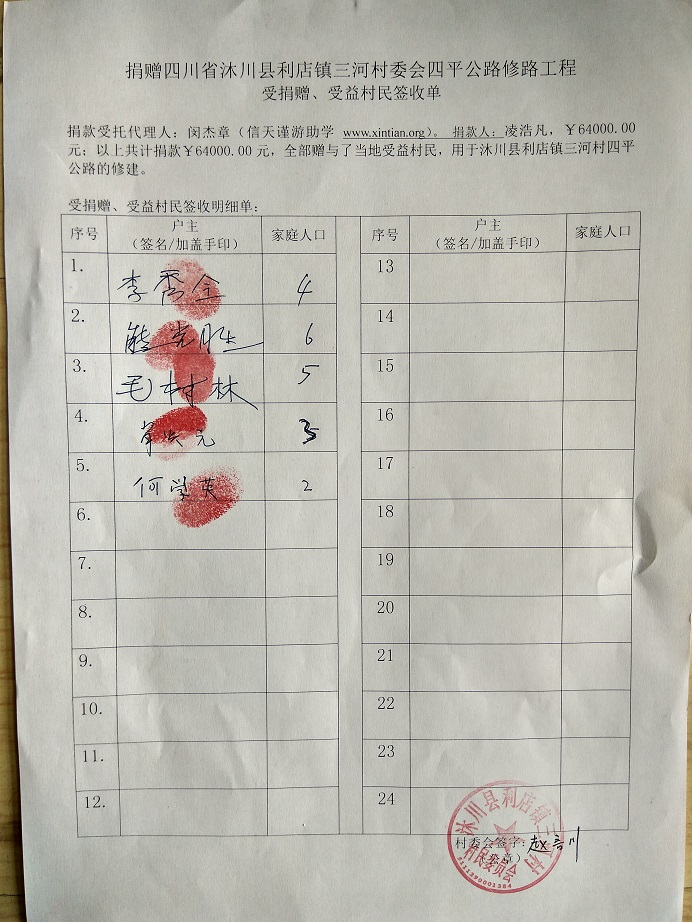 捐赠四川省沐川县利店镇三河村委会四平公路修路工程
受捐赠、受益村民签收单
捐款受托代理人：闵杰章（信天谨游助学 www.xintian.org）。 捐款人：凌浩凡，￥64000.00
元；以上共计捐款￥64000.00 元，全部赠与了当地受益村民，用于沐川县利店镇三河村四平
公路的修建。
受捐赠、受益村民签收明细单：
序号 户主 家庭人口 序号 户主 家庭人口
（签名/加盖手印） （签名/加盖手印）
1. 李秀全 4 13
2. 熊党胜 6 14
3. 毛村林 5 15
4. 元 3 16
5. 何学英 2 17
6. 18
7. 19
8. 20
9. 21
10. 22
11. 23
12. 24
沐川县利店镇三河村
村民委员会
村委会签字：赵
章）